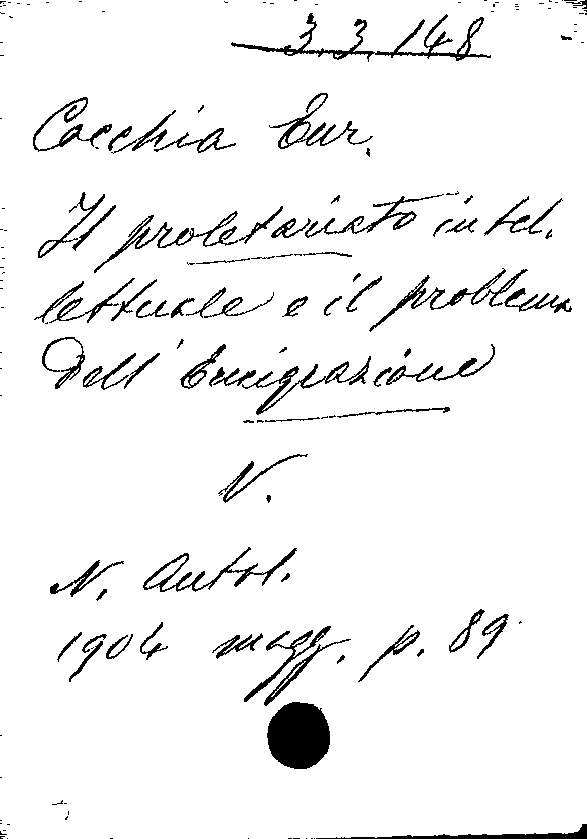 3.3.148
Cocchia Eur.
Il proletariato intel,
lettuale e il problema
dell' Emigrazione
V.
N. Antol.
1904 magg. p. 89